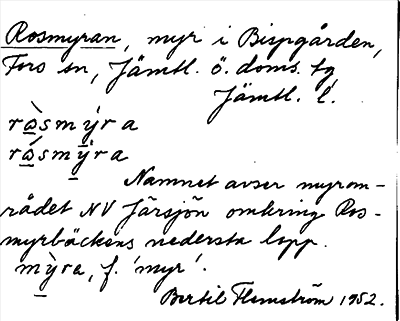 Rosmyran, myr i Bispgården,
Fors sn, Jämtl. ö. doms. tg,
Jämtl. l.
rὰsmýra
rásmýra
Namnet avser myrom-
rådet NV Järsjön omkring Ros-
myrbäckens nedersta lopp.
mỳra, f. 'myr'.
Bertil Flemström 1952.